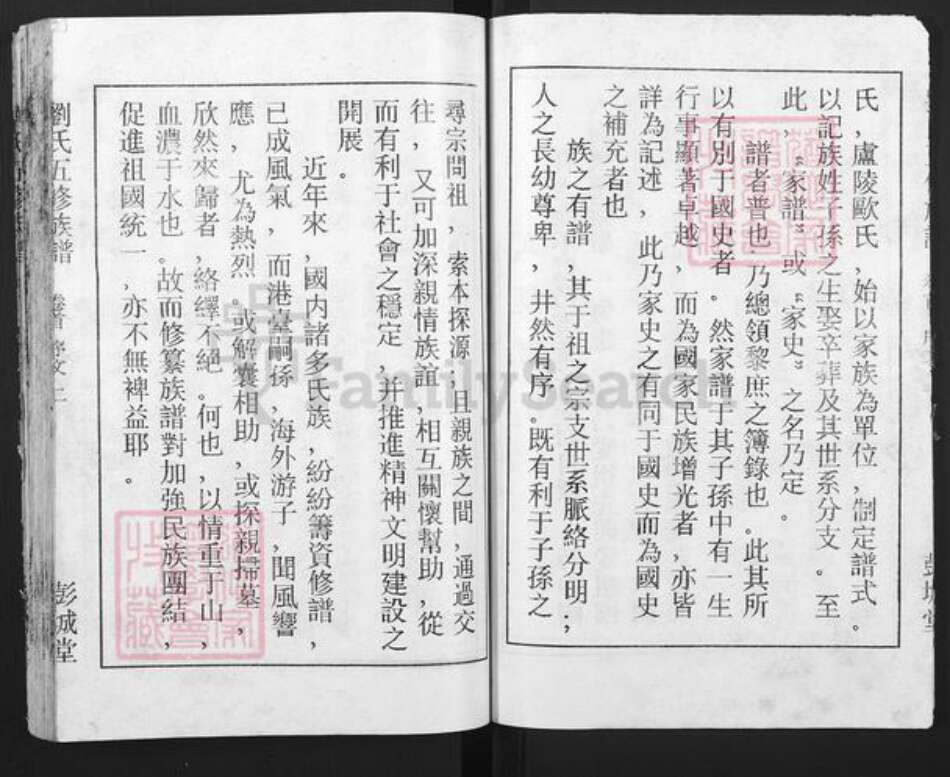 氏，盧陵歐氏，始以家族為單位，制定譜式。
以記族姓子孫之生娶卒葬及其世系分支。至
此，“家譜”或“家史”之名乃定。
譜者普也，乃總領黎庶之簿錄也。此其所
以有別于國史者。然家譜于其子孫中有一生
行事顯著卓越，而為國家民族增光者，亦皆
詳為記述，此乃家史之有同于國史而為國史
之補充者也
族之有譜，其于祖之宗支世系脈絡分明；
人之長幼尊卑，井然有序。既有利于子孫之
彭城堂
尋宗問祖，索本探源，且親族之間，通過交
往，又可加深親情族誼，相互關懷幫助，從
而有利于社會之穩定，并推進精神文明建設之
開展。
近年來，國内諸多氏族，紛紛籌資修譜，
已成風氣，而港臺嗣孫，海外游子，聞風響
應，尤為熱烈。或解囊相助，或探親掃墓，
欣然來歸者，絡繹不絕。何也，以情重于山，
血濃于水也。故而修纂族譜對加強民族團結，
促進祖國統一，亦不無裨益耶。
劉氏五修族譜 卷首 序文上 彭城堂
FamilySearch